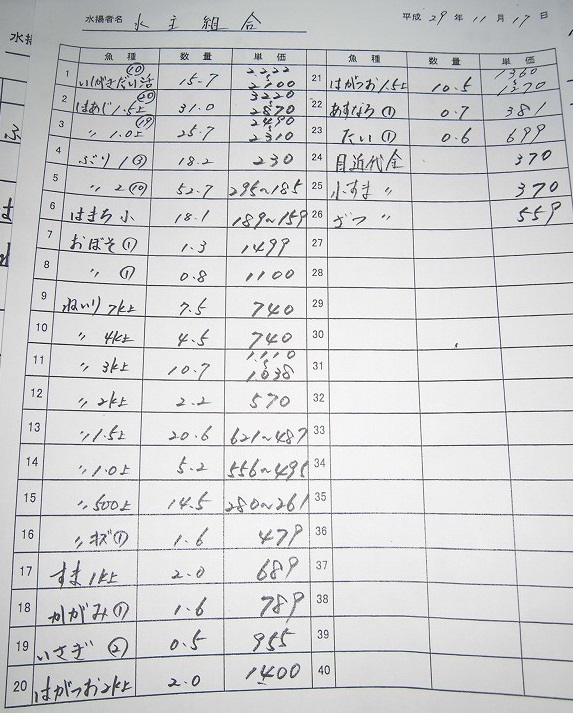 水揚者名 水主組合 平成 29 年 11 月 17 日
魚種 数量 単価 魚種 数量 単価
1 いしがきだい活 ⑩ 15.7 2222~2100
2 はあじ1.5上 ⑳ 31.0 3220~2870
3 〃 1.0上 ⑲ 25.7 2490~2310
4 ぶり 1 ③ 18.2 230
5 〃 2 ⑩ 52.7 295~185
6 はまち 小 18.1 189~159
7 おぼそ ① 1.3 1499
8 〃 ① 0.8 1100
9 ねいり 7k上 7.5 740
10 〃 4k上 4.5 740
11 〃 3k上 10.7 1110~1038
12 〃 2k上 2.2 570
13 〃 1.5上 20.6 621~487
14 〃 1.0上 5.2 556~495
15 〃 500上 14.5 280~261
16 〃 キズ ① 1.6 479
17 すま 1k上 2.0 689
18 かがみ ① 1.6 789
19 いさぎ ② 0.5 955
20 はがつお2k上 2.0 1400
21 はがつお1.5上 10.5 1360~1370
22 あすなろ ① 0.7 381
23 たい ① 0.6 699
24 目近代金 370
25 小すま 〃 370
26 ざつ 〃 559
27
28
29
30
31
32
33
34
35
36
37
38
39
40
水揚